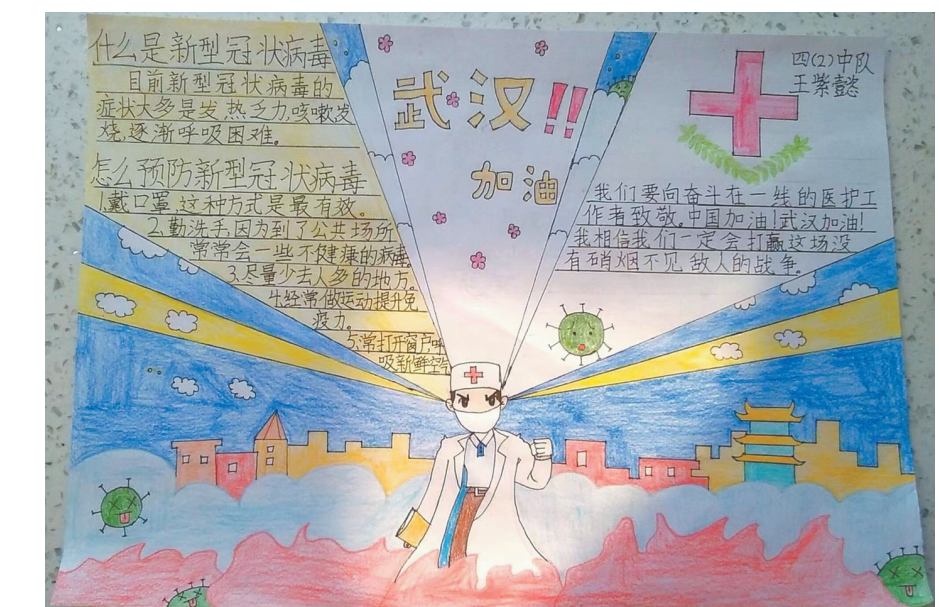 什么是新型冠状病毒
目前新型冠状病毒的
症状大多是发热乏力,咳嗽发
烧,逐渐呼吸困难。
怎么预防新型冠状病毒
1.戴口罩,这种方式是最有效。
2.勤洗手,因为到了公共场所
常常会一些不健康的病毒
3.尽量少去人多的地方。
4.经常做运动提升免
疫力。
5.常打开窗户呼
吸新鲜空气
武汉!!
加油
四(2)中队
王紫懿
我们要向奋斗在一线的医护工
作者致敬。中国加油!武汉加油!
我相信我们一定会打赢这场没
有硝烟不见敌人的战争。